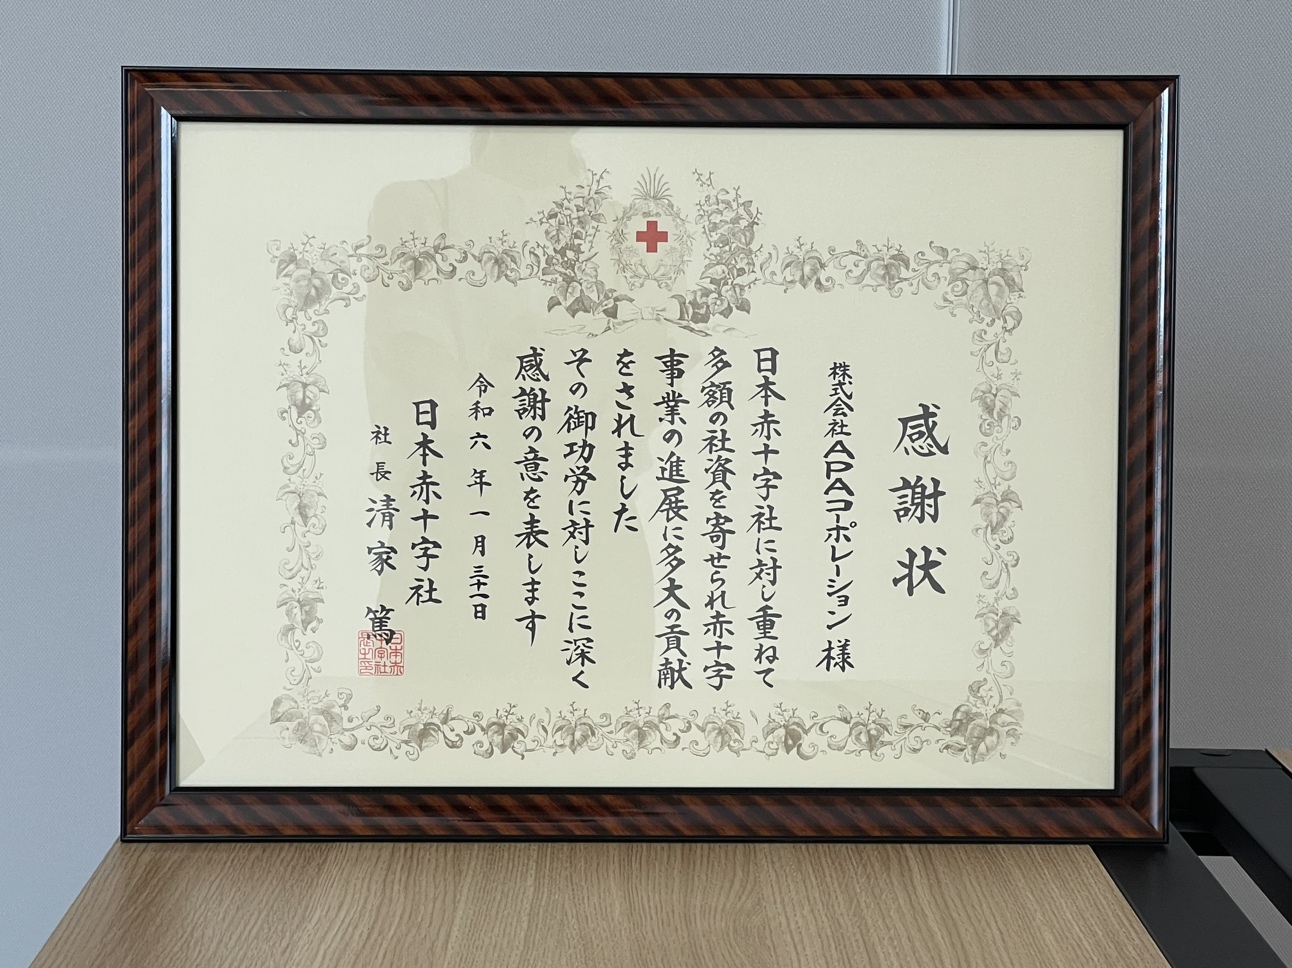 感謝状
株式会社APAコーポレーション 様
日本赤十字社に対し重ねて
多額の社資を寄せられ赤十字
事業の進展に多大の貢献
をされました
その御功労に対しここに深く
感謝の意を表します
令和六年一月三十一日
日本赤十字社
社長 清家 篤
日本赤
十字社